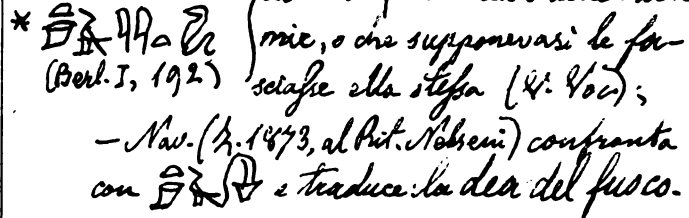 * mie, o che supponevasi le fa-
(Berl. I, 192) sciasse ella stessa (V. Voc);
— Nav. (Z. 1873, al Rit. Nebseni) confronta
con e traduce: la dea del fusco.